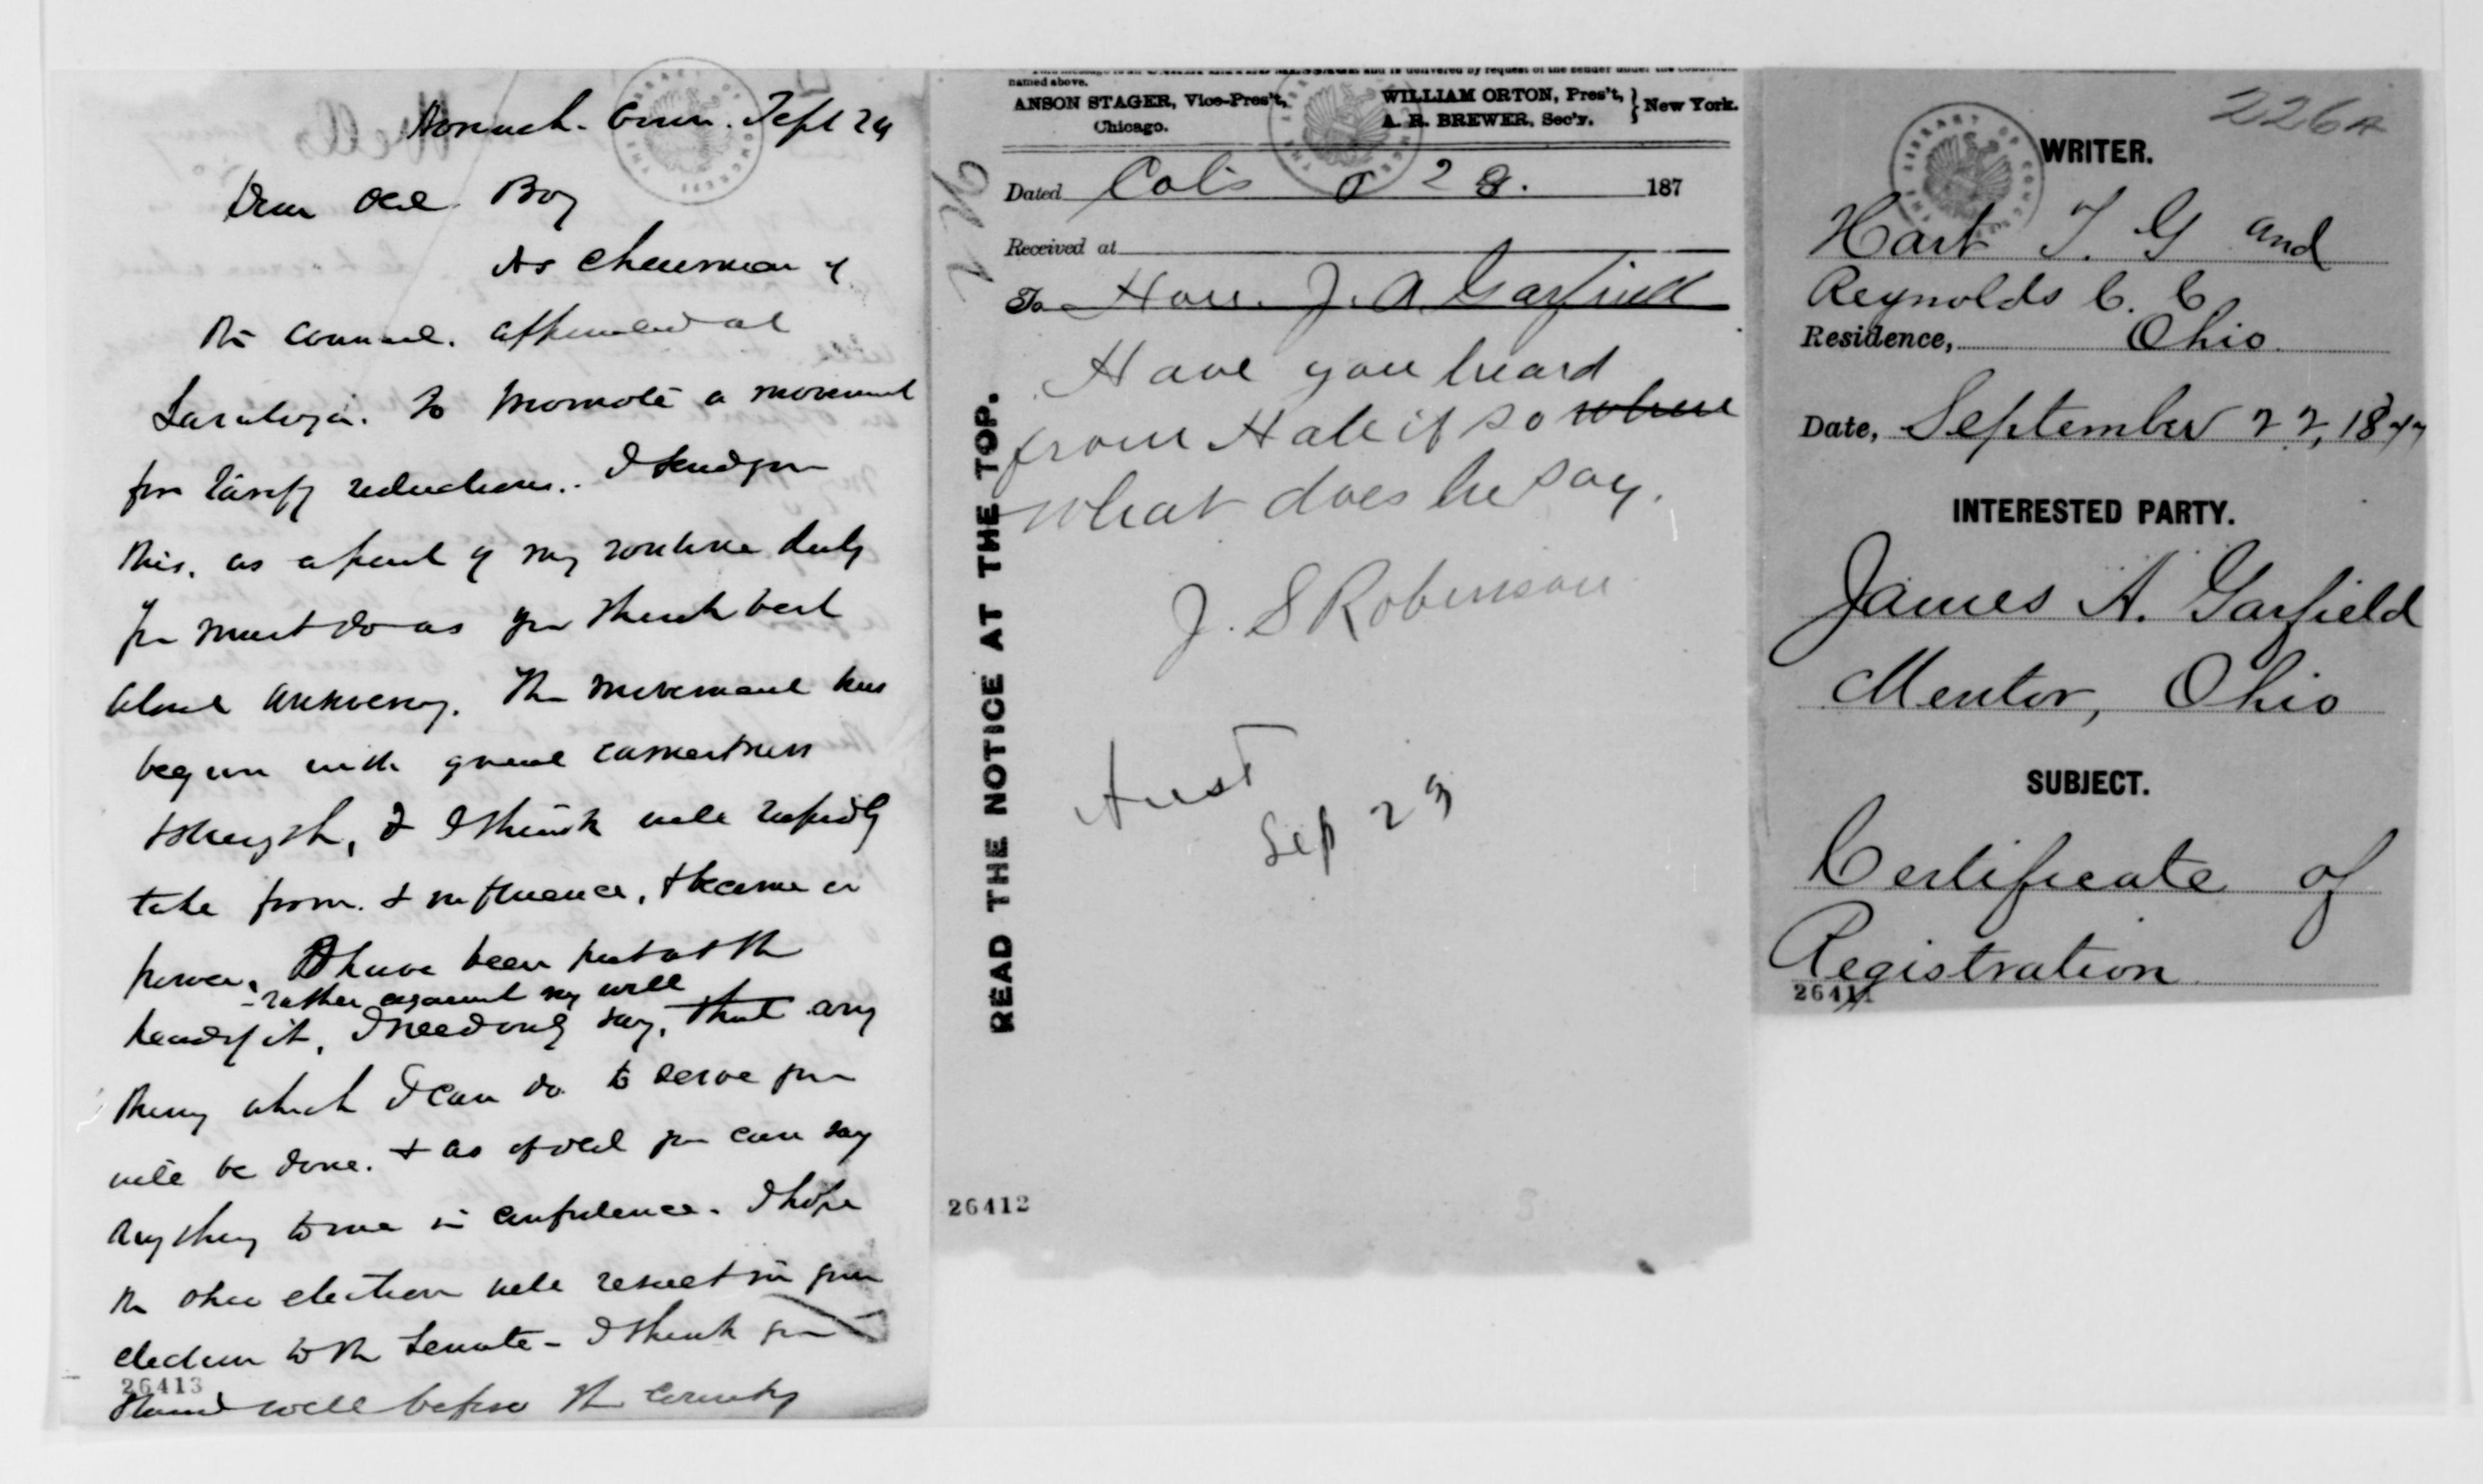 Norwich. Conn. Sept 24
Dear Old Boy
As Chairman of
the council. appointed at
Saratoga. to promote a movement
for tariff reductions. I send you
this. as a part of my routine duty
You must do as you think best
about answering. The movement has
begun with great earnestness
& strength, & I think will rapidly
take form. & influence, & become a
power. I have been put at the
- rather against my will
head of it, I need only say, that any
thing which I can do to serve you
will be done. & as of old you can say
anything to me in confidence. I hope
the Ohio election will result in your
election to the Senate - I think you
26413
stand well before the country
named above.
ANSON STAGER, Vice-Pres't,
Chicago.
WILLIAM ORTON, Pres't,
A. R. BREWER, Sec'y.
New York.
226
Dated Col's O 28. 187
Received at
To Hon. J. A. Garfield
Have you heard
from Hale if so where
what does he say.
J. S Robinson
Anst
Sep 29
READ THE NOTICE AT THE TOP.
26412
226A
WRITER.
Hart T. G and
Reynolds C. C.
Residence, Ohio
Date, September 22, 1877
INTERESTED PARTY.
James A. Garfield
Mentor, Ohio
SUBJECT.
Certificate of
Registration
26411